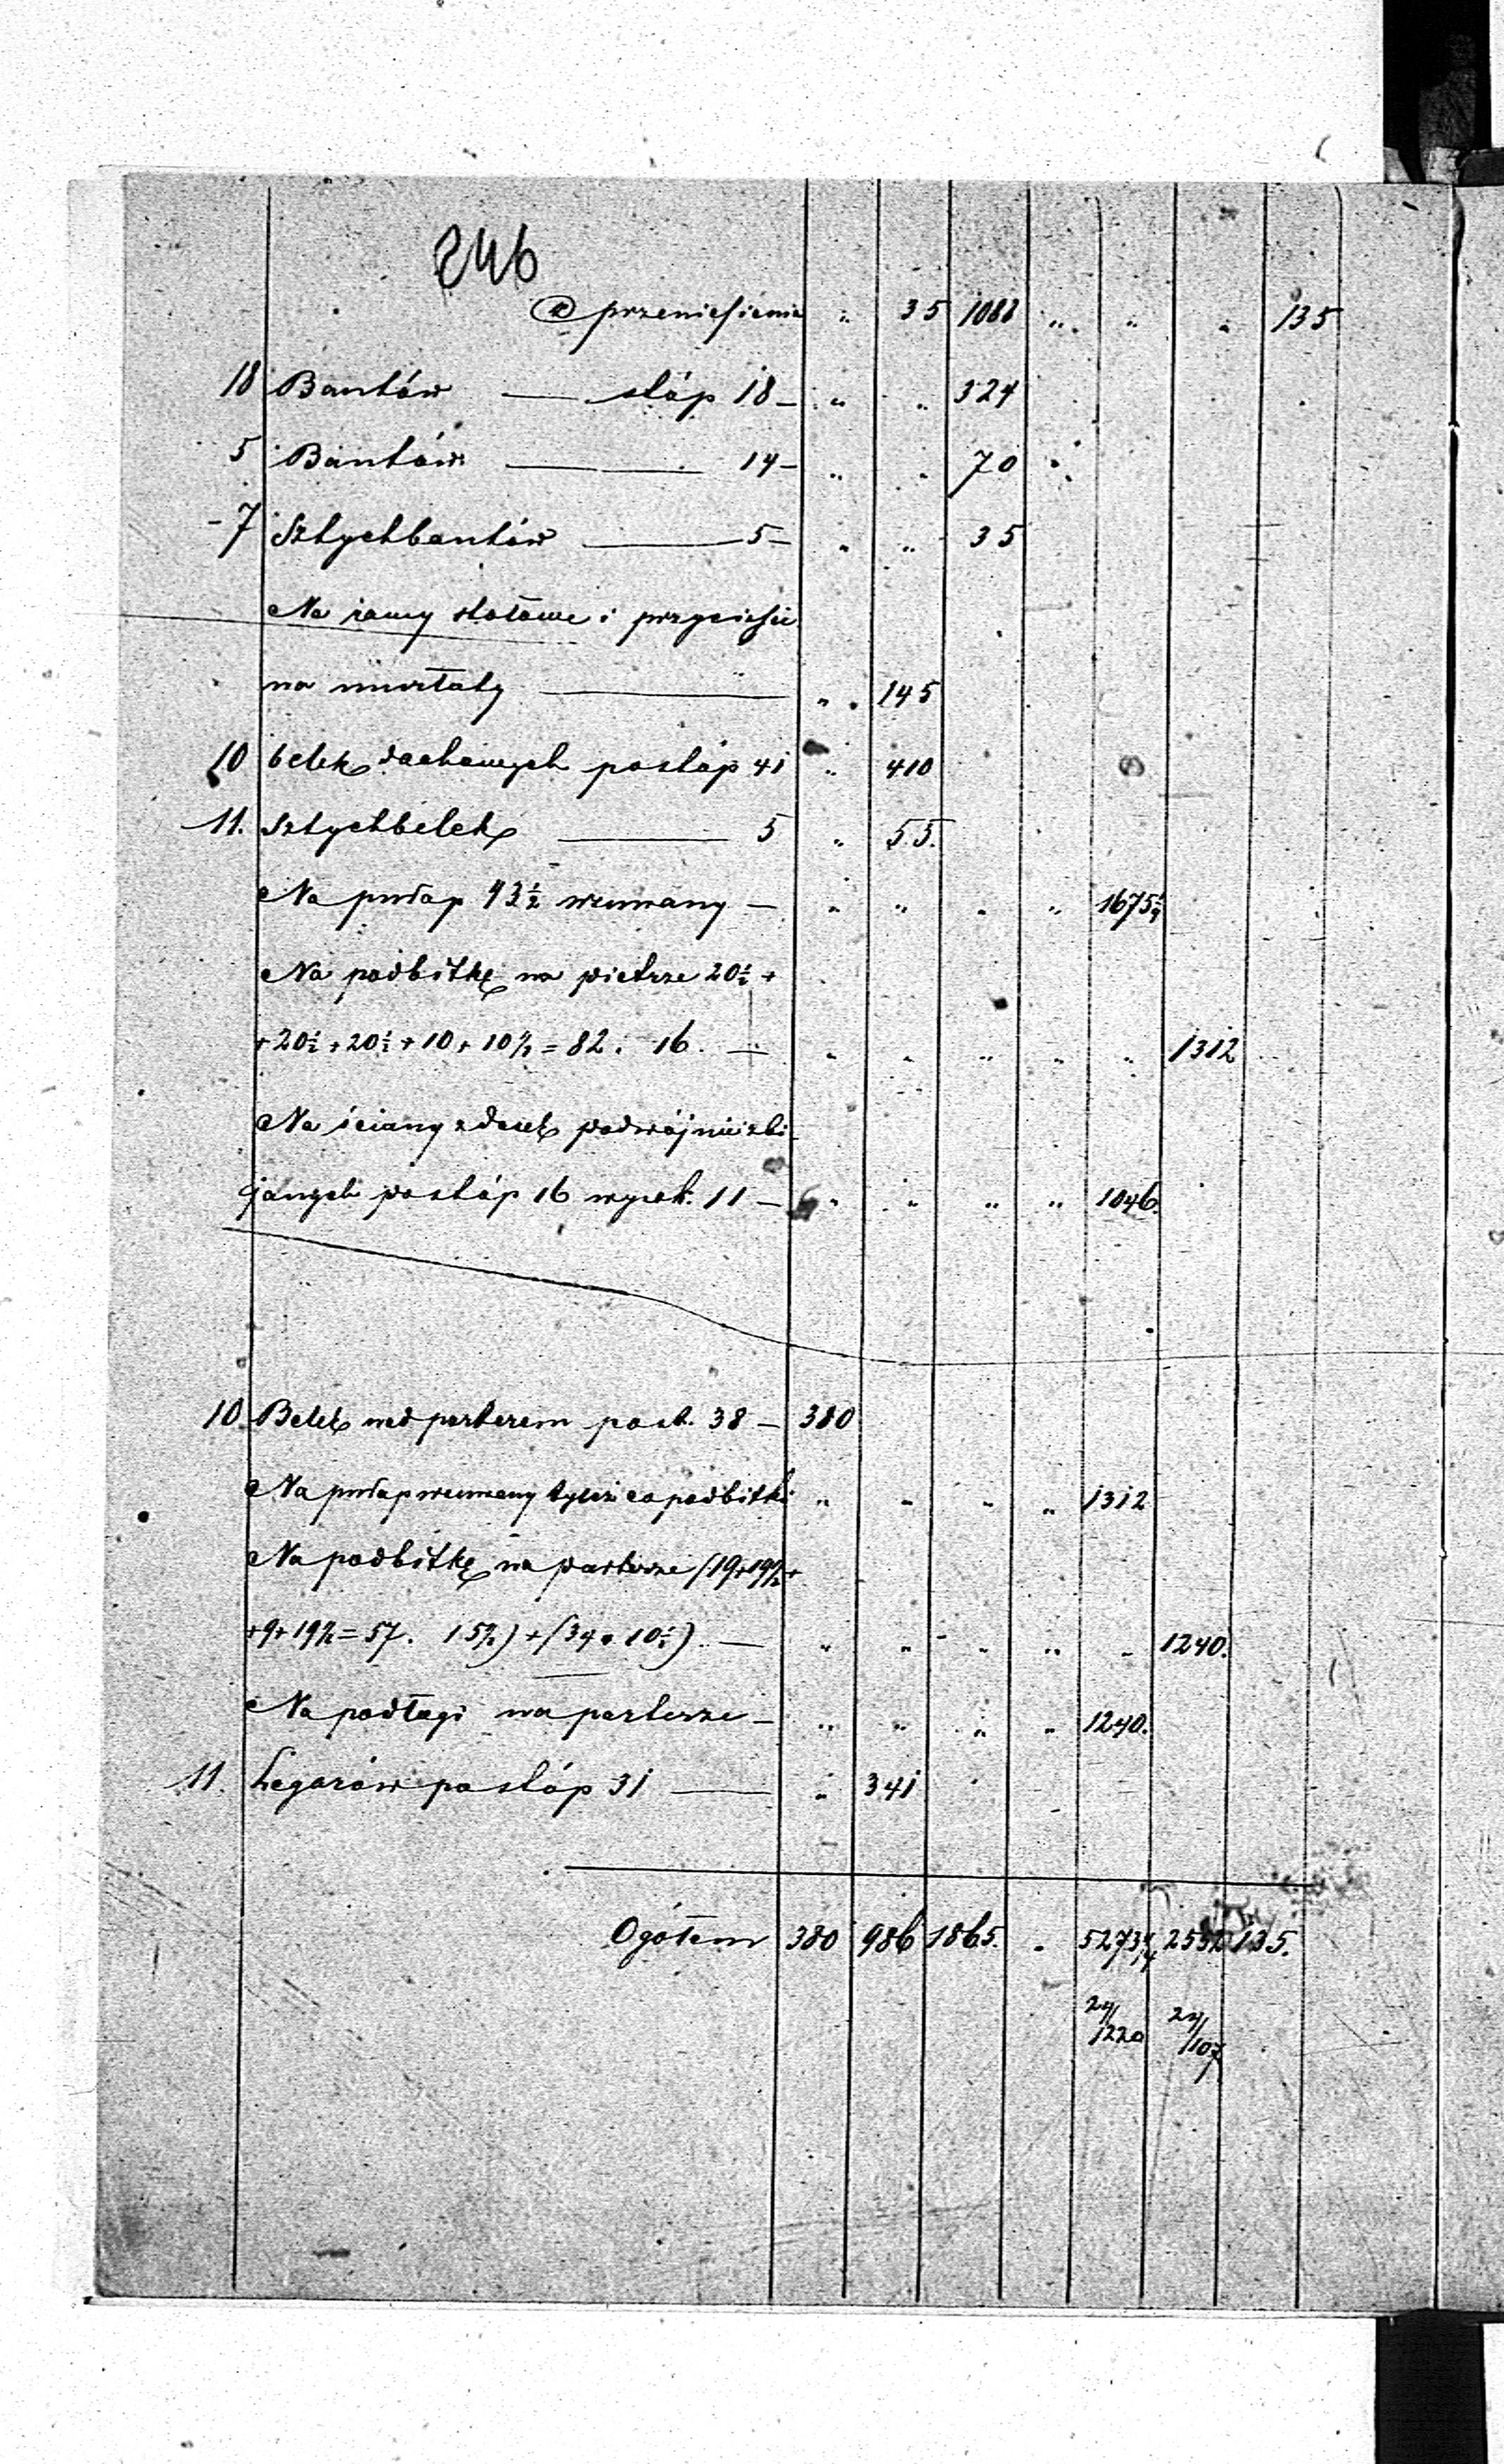 246
Z przeniesienia " 35 108 " " " 135
18 Bantów — stóp 18 — " " 324
5 Bantów — 14 — " " 70 "
7 Sztychbantów — 5 — " " 35
Na ramy stołowe i przyciesie
na murłaty — " 145
10 belek dachowych po stóp 41 " 410
11. Sztychbelek — 5 " 55.
Na pułap 43½ — " " " " 1675¼
Na podbitkę na pietrze 20½ +
+ 20½ + 20½ + 10 + 10½ = 82. 16. — " " " " " 1312
Na ściany z desek podwójnie zbi
janych po stóp 16 wysok. 11 — " " " " 1046.
10 Belek nad parterem po st. 38 — 380
Na pułap tyleż co podbitki " " " " 1312
Na podbitkę na parterze (19 + 19½ +
+ 9 + 19½ = 57. 15½) + (34 · 10½) — " " " " " 1240.
Na podłagi na parterze — " " " " 1240.
11. Legarów po stóp 31 — " 341
Ogółem 380 986 1865. " 5273¼ 2552 135.
24/1220 24/107